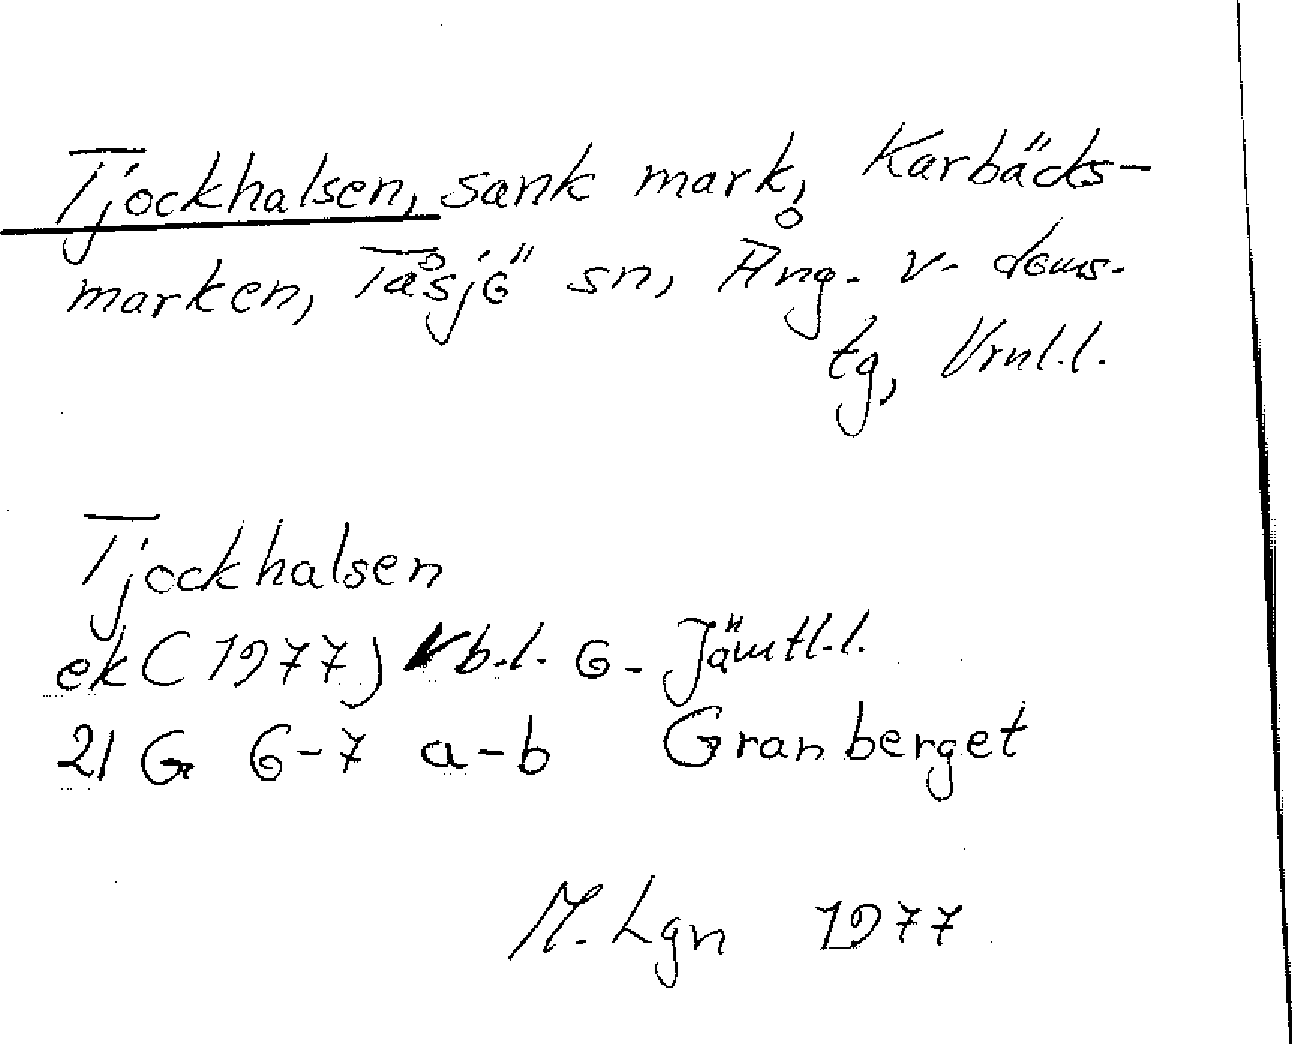 Tjockhalsen, sank mark, Karbäcks-
marken, Tåsjö sn, Ång. v. doms-
tg, Vrnl.l.
Tjockhalsen
ek (1977) Vb.l. o. Jämtl.l.
21 G 6-7 a-b Granberget
M. Lgn 1977